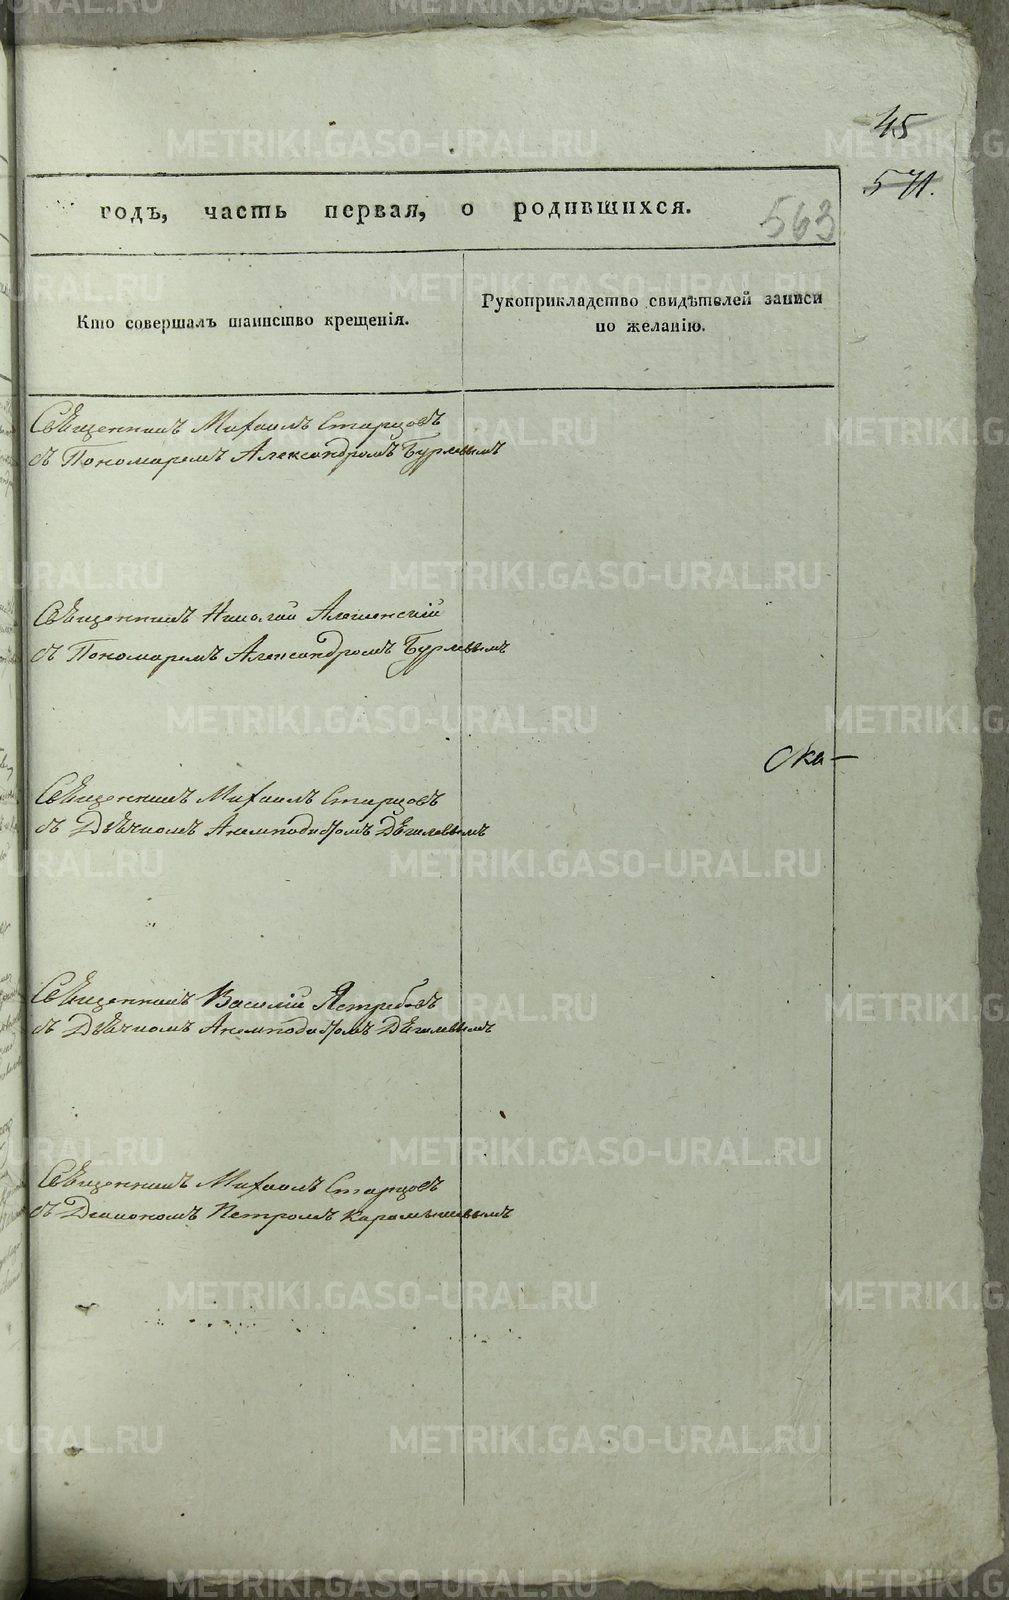 45
571.
годъ, часть первая, о родившихся.
563
Кто совершалъ таинство крещенія.
Рукоприкладство свидѣтелей записи
по желанію.
Священникъ Михаилъ Старцовъ
съ Пономаремъ Александромъ Бурлевымъ
Священникъ Николай
съ Пономаремъ Александромъ Бурлевымъ
Ска—
Священникъ Михаилъ Старцовъ
съ Дьячкомъ Анемподистомъ Дягилевымъ
Священникъ Василій Ястребовъ
съ Дьячкомъ Анемподистомъ Дягилевымъ
Священникъ Михаилъ Старцовъ
съ Діакономъ Петромъ Карамышевымъ
METRIKI.GASO-URAL.RU